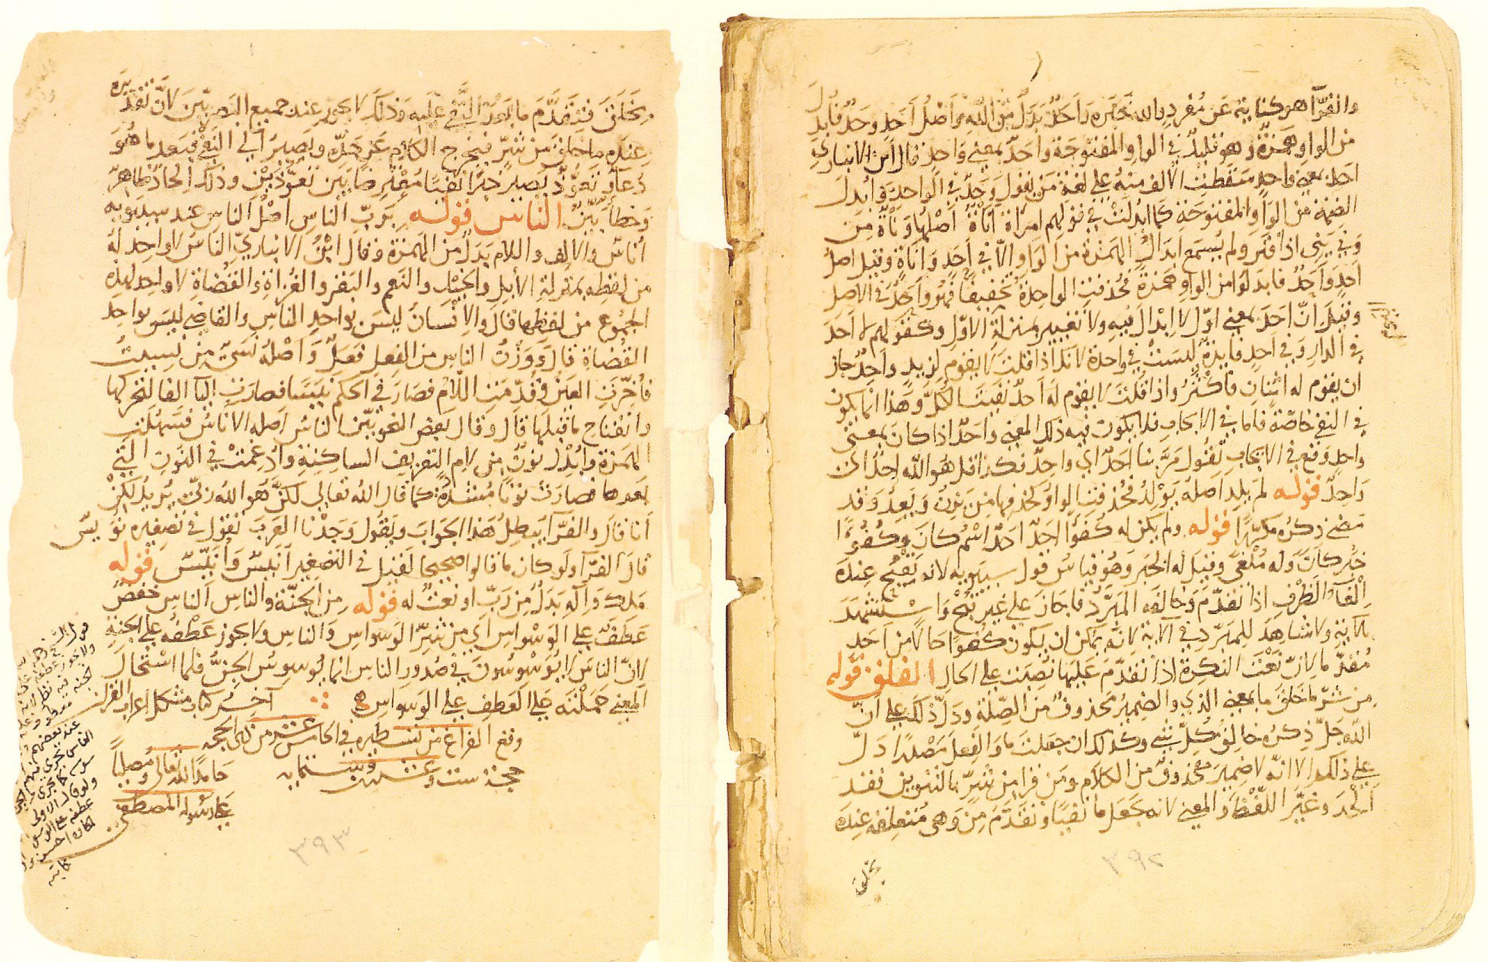 والفرّاء هو كناية عن مفرد والله خبره واحد بدل من الله واصل احد وحد فابدل
من الواو همزة وهو قليل في الواو المفتوحة واحد بمعنى واحد قال ابن الانباري
احد بمعنى واحد سقطت الالف منه على لغة من يقول وحد في الواحد وابدل
الهمزة من الواو المفتوحة كما ابدلت في قولهم امراة اناة اصلها وناة من
ونى يني اذا فتر ولم يسمع ابدال الهمزة من الواو الا في احد واناة وقيل اصل
احد واحد فابدلوا من الواو همزة فحذفت الواحدة تخفيفا فهو واحد في الاصل
وقيل انّ احد بمعنى اول لا ابدال فيه ولا تغيير بمنزلة الاول وكقولهم لا احد
في الدار وفي احد فايدة ليست في واحد لانك اذا قلت لا يقوم لزيد واحد جاز
ان يقوم له اثنان فاكثر واذا قلت لا يقوم له احد نفيت الكل وهذا انما يكون
في النفي خاصة فاما في الايجاب فلا يكون فيه ذلك المعنى واحد اذا كان بمعنى
واحد وقع في الايجاب تقول مر بنا احد اي واحد فكذا قل هو الله احد اى
واحد قوله لم يلد اصله يولد فحذفت الواو كحذفها من يرث ويعد وقد
مضى ذكره مكررا قوله ولم يكن له كفؤا احد احد اسم كان وكفؤا
خبر كان وله ملغى وقيل له الخبر وهو قياس قول سيبويه لانه يقبح عنده
الغاء الظرف اذا تقدّم وخالفه المبرّد فاجاز على غير قبح واستشهد
بالاية ولا شاهد للمبرد في الاية لانه يمكن ان يكون كفؤا حالا من احد
مقدّما لانّ نعت النكرة اذا تقدّم عليها نصبت على الحال الفلق قوله
من شرّ ما خلق ما بمعنى الذي والضمير محذوف من الصلة ودل ذلك على انّ
الله جلّ ذكره خالق كلّ شيء وكذلك ان جعلت ما والفعل مصدرا دلّ
على ذلك الا انه لا ضمير محذوف من الكلام ومن قرا من شرّ بالتنوين فقد
الحد وغيّر اللفظ والمعنى لانه يجعل ما نفيا وتقدّم من وهي متعلقة عنده
بخلق
٣٩٢
بخلق فتقدّم ما بعد النفي عليه وذلك لا يجوز عند جميع النحويين لانّ تقديره
عنده ما خلق من شرّ فيخرج الكلام عن حدّه ويصير الى النفي فيبعد ما هو
دعاء وتعوّذ يصير خبرا نفيا معترضا بين تعوّذين وذلك الحاد ظاهر
وخطأ بيّن الناس قوله بربّ الناس اصل الناس عند سيبويه
اناس والالف واللام بدل من الهمزة وقال ابن الانباري الناس لا واحد له
من لفظه بمنزلة الابل والخيل والنعم والبقر والغزاة والقضاة لا واحد لهذه
الجموع من لفظها قال والانسان ليس بواحد الناس والقاضي ليس بواحد
القضاة قال ووزن الناس من الفعل فعل واصله نسي من نسيت
فاخّرت العين وقدّمت اللام فصار في الحكم نيسا فصارت اليا الفا لتحركها
وانفتاح ما قبلها قال وقال بعض النحويّين الناس اصله الاناس فسهّلت
الهمزة وابدل نون من لام التعريف الساكنة وادغمت في النون التي
بعدها فصارت نونا مشدّدة كما قال الله تعالى لكنّا هو الله ربّي يريد لكن
انا قال والفرّا يبطل هذا الجواب ويقول وجدنا العرب تقول في تصغيره نويس
قال الفرّا ولو كان ما قالوا صحيحا لقيل في التصغير انيس وانيّس قوله
ملك واله بدل من ربّ او نعت له قوله من الجنّة والناس الناس خفض
عطف على الوسواس اي من شرّ الوسواس والناس ولا يجوز عطفه على الجنة
لانّ الناس لا يوسوسون في صدور الناس انما يوسوس الجنّ فلما استحال
المعنى حملته على العطف على الوسواس آخر كتاب مشكل اعراب القران
وقع الفراغ من تسطيره في الخامس عشر من ذى الحجه
حجة ست وعشرين وستمايه حامدا لله تعالى ومصليا
على رسوله المصطفى
٣٩٣